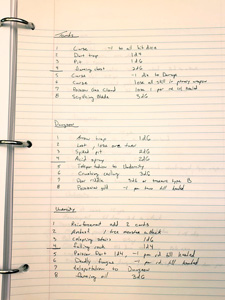 Tombs
1 Curse -1 to all hit dice
2 Dart trap 1d4
3 Pit 1d6
4 Burning chest 2d6
5 Curse -1 die to Damage
6 Curse lose all skill in primary weapon
7 Poison Gas Cloud 1 per rd til healed
8 Scything Blade 3d6
Dungeon
1 Arrow trap 1d6
2 Lost, lose one turn
3 Spiked pit 2d6
4 Acid spray 2d6
5 Teleportation to University
6 Crushing ceiling 3d6
7 riddle 3d6 or treasure type B
8 Poisoned -1 per turn til healed
University
1 Reinforcement add 2 cards
2 Ambush 1 free monster attack
3 Collapsing stairs 1d6
4 Falling rock 1d4
5 Poison Dart 1d4, -1 per rd til healed
6 Deadly Fungus -1 per rd til healed
7 Teleportation to Dungeon
8 Burning oil 3d6